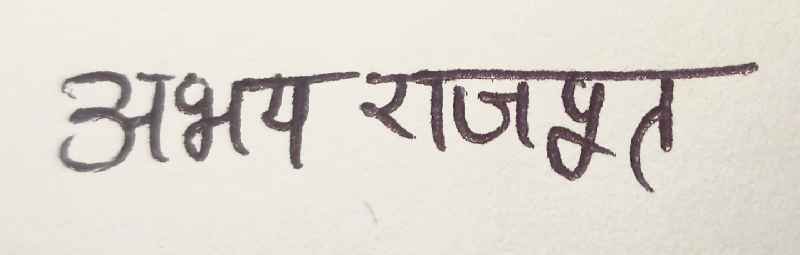 अभय राजपूत